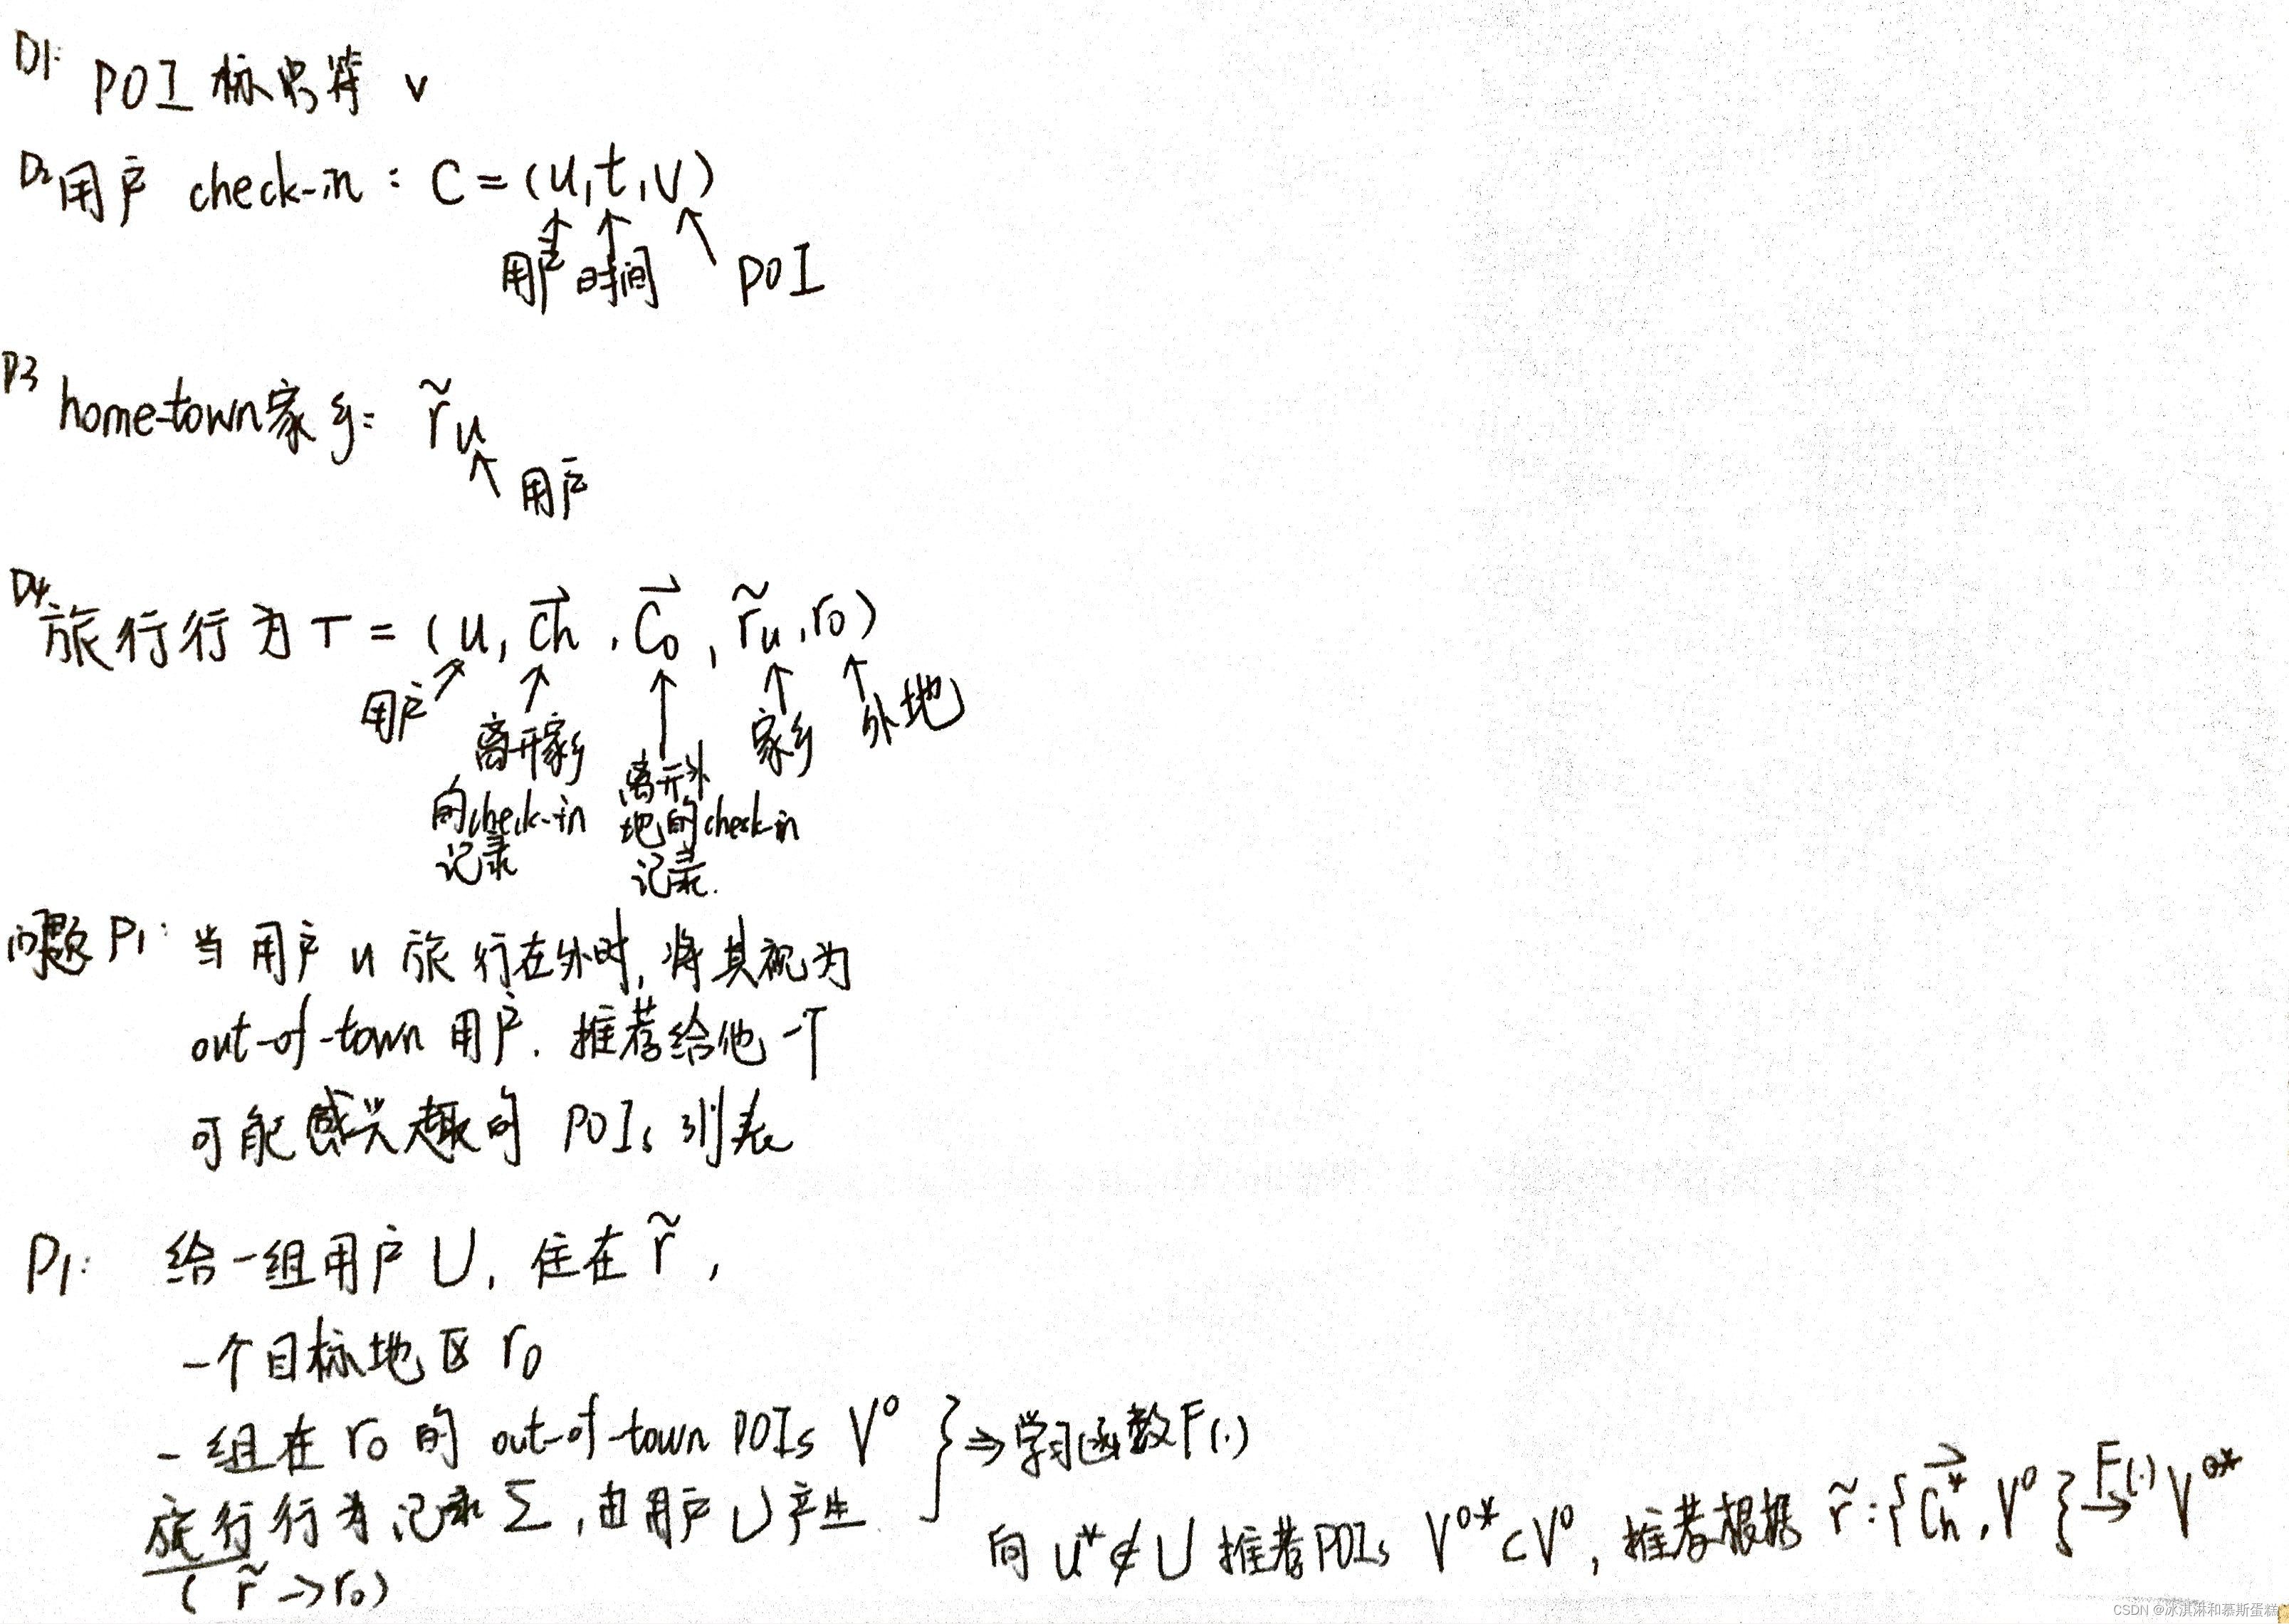 D1: POI 标识符 v
D2 用户 check-in : C = (u, t, v)
用户 时间 POI
D3 home-town家乡: r̃u
用户
D4 旅行行为 T = (u, c⃗h, c⃗o, r̃u, ro)
用户 离开家乡的check-in记录 离开外地的check-in记录. 家乡 外地
问题 P1: 当用户 u 旅行在外时, 将其视为
out-of-town 用户. 推荐给他一个
可能感兴趣的 POIs 列表
P1: 给一组用户 U, 住在 r̃,
一个目标地区 r0
一组在 r0 的 out-of-town POIs V⁰ } ⇒ 学习函数 F(.)
旅行行为记录 Σ, 由用户 U 产生
(r̃ → r0)
向 u* ∉ U 推荐 POIs V⁰* ⊂ V⁰, 推荐根据 r̃: {C⃗h*, V⁰} F(.)→ V⁰*
CSDN @冰淇淋和慕斯蛋糕